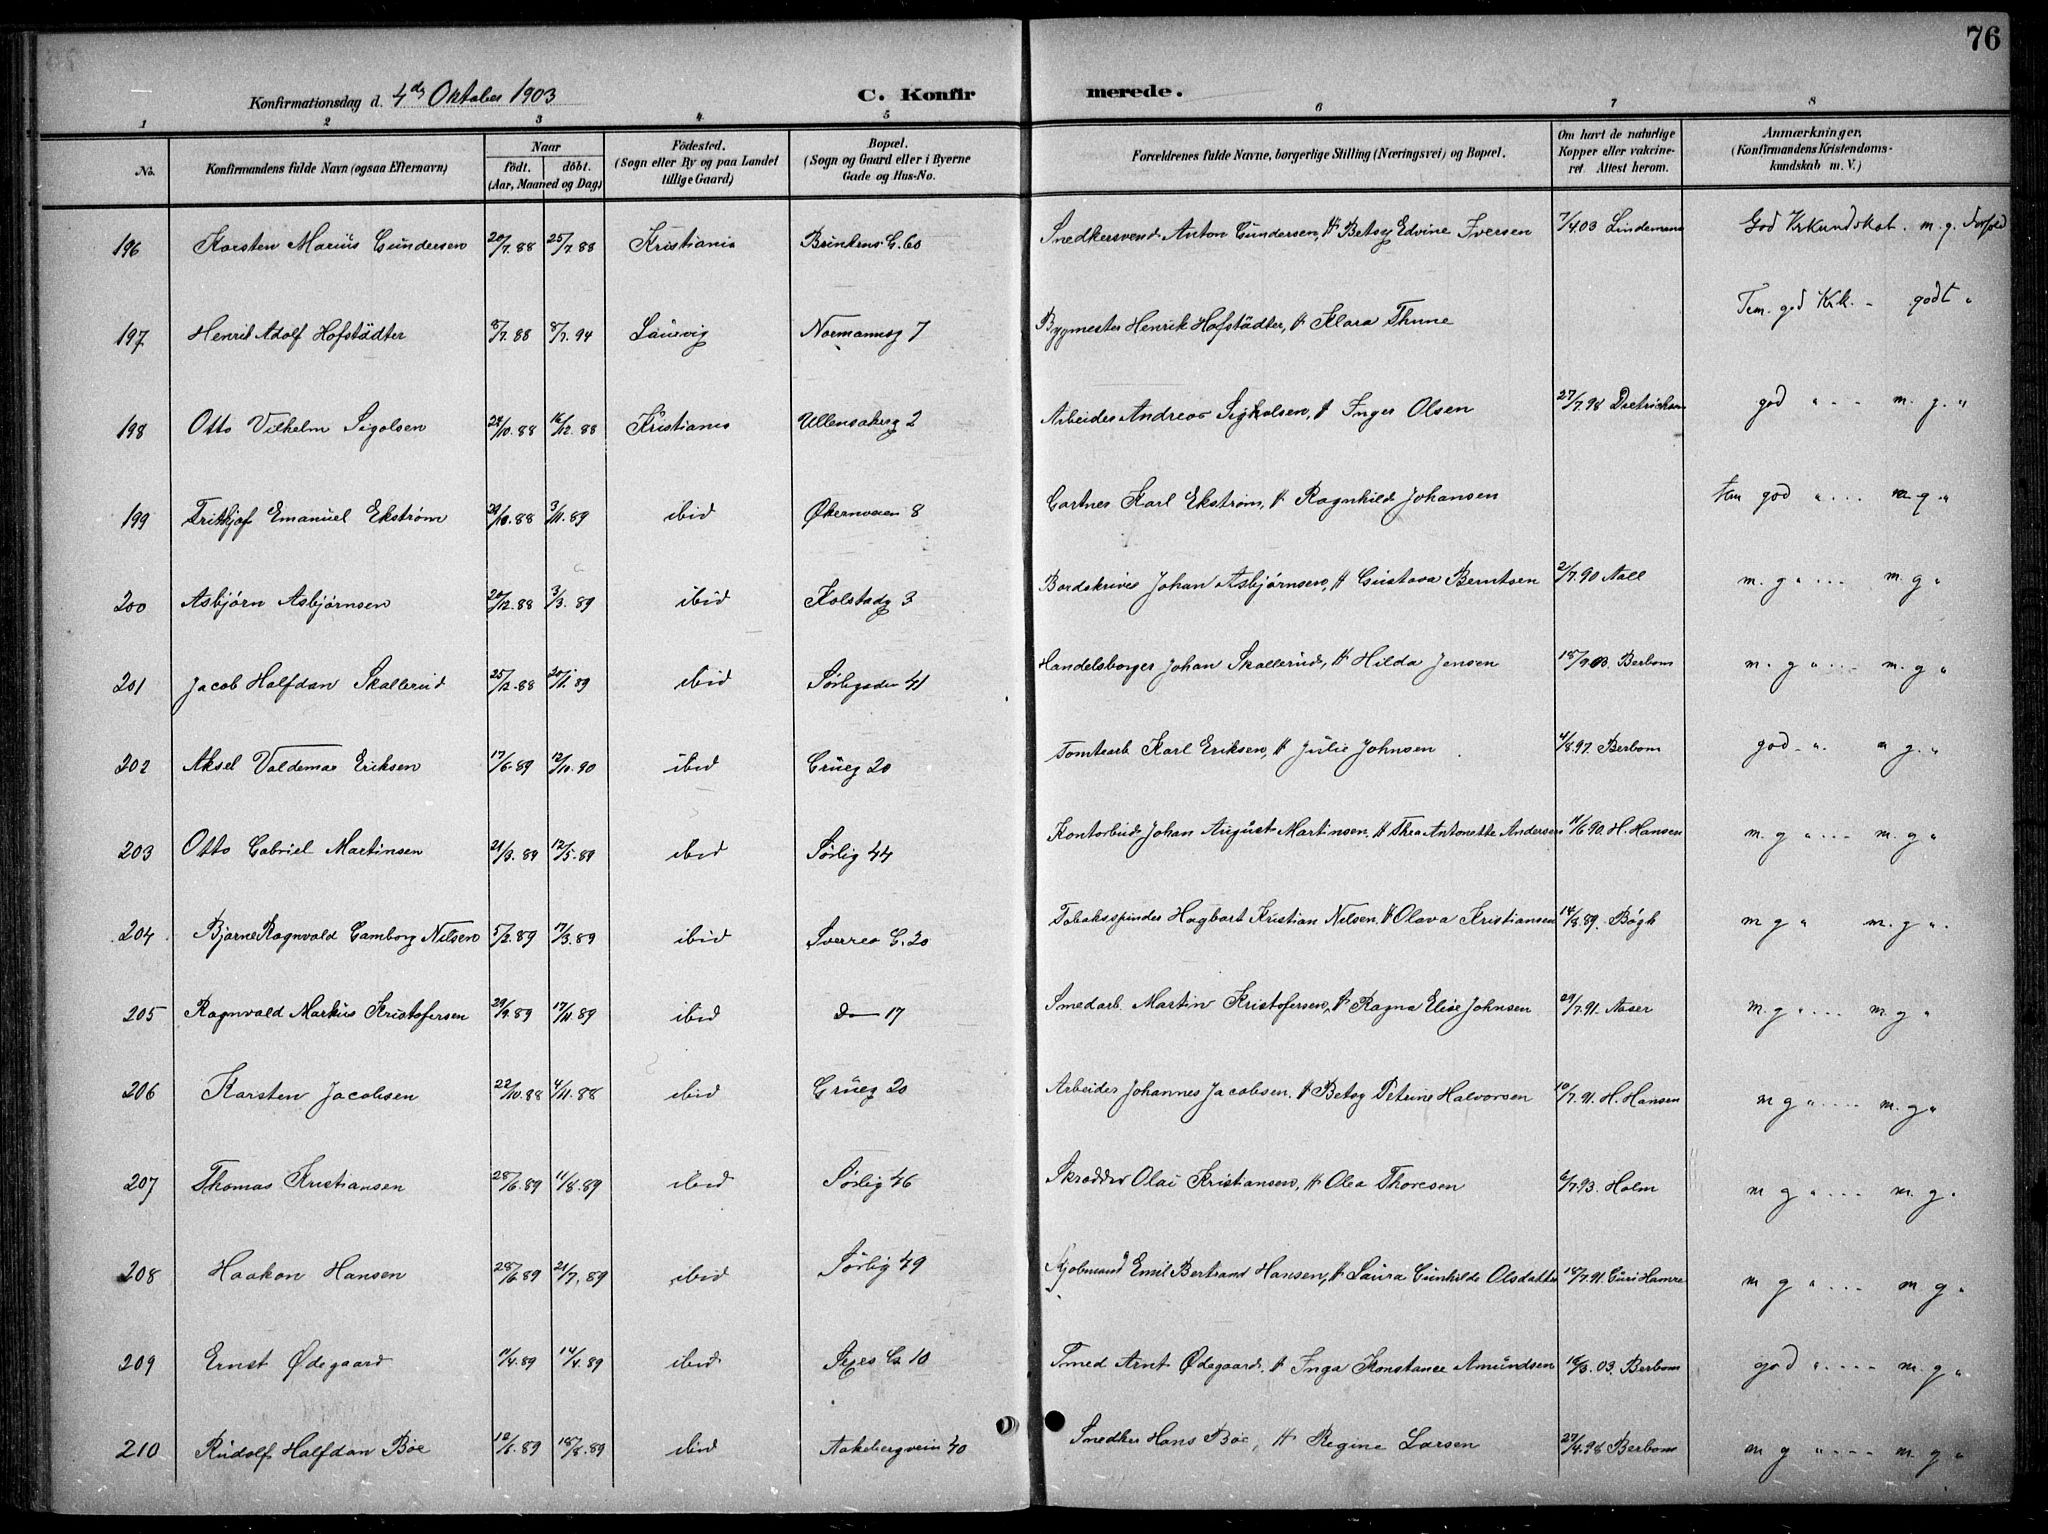 76
Konfirmationsdag d. 4de Oktober 1903 C. Konfirmerede.
1 2 3 4 5 6 7 8
No. Konfirmandens fulde Navn (ogsaa Efternavn) Naar født. døbt. (Aar, Maaned og Dag) Fødested. (Sogn eller By og paa Landet tillige Gaard) Bopæl. (Sogn og Gaard eller i Byerne Gade og Hus-No. Forældrenes fulde Navne, borgerlige Stilling (Næringsvei) og Bopæl. Om havt de naturlige Kopper eller vakcineret. Attest herom. Anmærkninger. (Konfirmandens Kristendomskundskab m. V.)
196 Karsten Marius Gundersen 20/7.88 25/7.88 Kristiania Brinkens G. 60 Snedkersvend Anton Gundersen, H Betsy Edvine Iversen 7/4.03 Lindeman God Krkundskab. m. g. Forhold
197 Henrik Adolf Hofstädter 8/7.88 8/7.94 Laurvig Normannsg 7 Bygmester Henrik Hofstädter, H Klara Thune Tem. god Krk. - godt "
198 Otto Vilhelm Sigolsen 24/10.88 16/12.88 Kristiania Ullensakerg 2 Arbeider Andreas Sigholsen, H Inger Olsen 27/7.98 Dietrichson god " - - - m. g. "
199 Fritjof Emanuel Ekstrøm 20/10.88 3/11.89 ibid Økernveien 8 Gartner Karl Ekstrøm, H Ragnhild Johansen tem god " - - - m g. "
200 Asbjørn Asbjørnsen 20/12.88 3/3.89 ibid Kolstadg 3 Bordskriver Johan Asbjørnsen, H Gustava Berntsen 2/7.90 Aall m. g " - - - m. g "
201 Jacob Halfdan Skallerud 25/12.88 20/1.89 ibid Sørligaden 41 Handelsborger Johan Skallerud, H Hilda Jensen 18/9.03. Berbom m. g " - - - m. g "
202 Aksel Valdemar Eriksen 17/6.89 12/10.90 ibid Grüeg 20 Tomtearb. Karl Eriksen, H Julie Johnsen 4/8.97. Berbom god - ". " g. "
203 Otto Gabriel Martinsen 21/3.89 12/5.89 ibid Sørlig 44 Kontorbud Johan August Martinsen, H Thea Antonette Andersen 11/6 90. H. Hansen m. g " - - - m. g "
204 Bjarne Ragnvald Gamborg Nilsen 5/2.89 17/3.89 ibid Sverres G. 20 Tobaksspinder Hagbart Kristian Nilsen, H Olava Kristiansen 14/8.89. Bøgh m g " m. g ".
205 Ragnvald Markus Kristofersen 29/9.89 17/11.89 ibid do 17 Smedarb. Martin Kristofersen, H Ragna Elise Johnsen 29/7.91. Aaser m. g " - - - m. g "
206 Karsten Jacobsen 22/10.88 4/11.88 ibid Grüeg 20 Arbeider Johannes Jacobsen. H Betsy Petrine Halvorsen 10/7.91. H. Hansen m g " - - - m. g "
207 Thomas Kristiansen 28/6.89 11/8.89 ibid Sørlig 46 Skrædder Olai Kristiansen, H Olea Thoresen 6/7.93. Holm m g " - - - m. g.
208 Haakon Hansen 28/6.89 21/7.89 ibid Sørlig 49 Sjøbmand Emil Bertrand Hansen, H Laura Gunhilde Olsdatter 18/7.91. Guri Hamre m g " - - - m g "
209 Ernst Ødegaard 11/4.89 14/4.89 ibid Sejes G 10 Smed Arnt Ødegaard. H Inga Konstance Amundsen 18/3.03. Berbom god " - - - m. g "
210 Rudolf Halfdan Bøe 10/6.89 18/8.89 ibid Aakebergveien 40 Snedker Hans Bøe, H Regine Larsen 27/4.98 Berbom m g " - - - m. g "